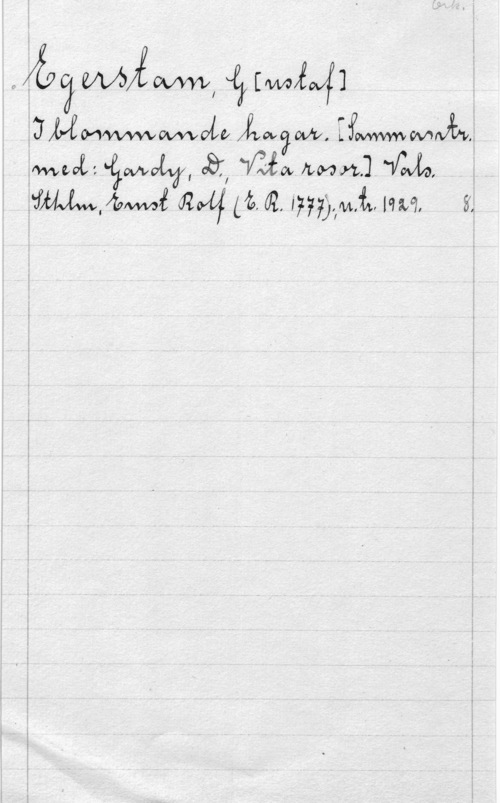 Ork.
Egerstam, G[ustaf]
I blommande hagar. [Sammantr.
med: Gardy, D., Vita rosor.] Vals.
Sthlm, Ernst Rolf (E. R. 1777); n. tr. 1929. 8.